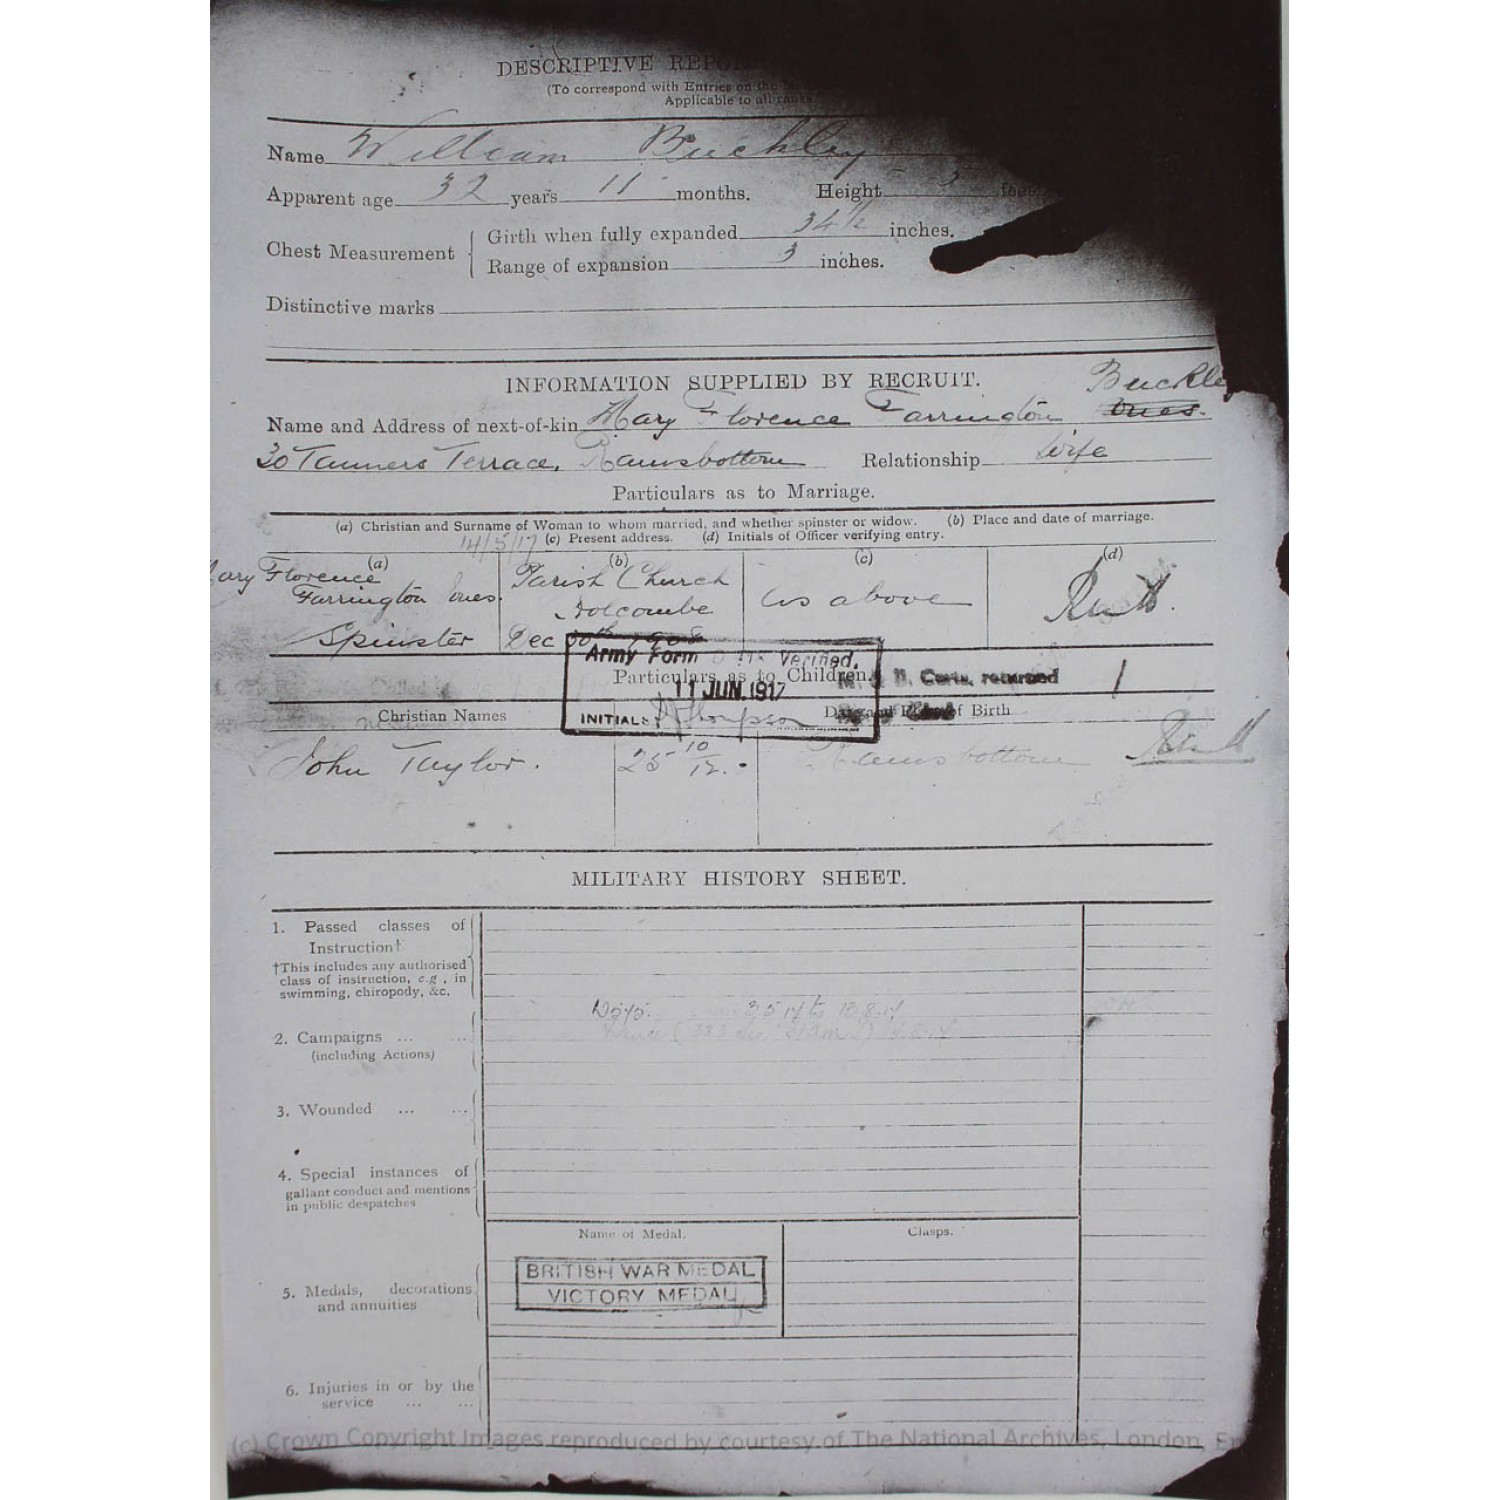 DESCRIPTIVE REPO
(To correspond with Entries on the
Applicable to all ranks
Name William Buckley
Apparent age 32 years 11 months. Height 5 feet
Chest Measurement { Girth when fully expanded 34½ inches.
Range of expansion 3 inches.
Distinctive marks
INFORMATION SUPPLIED BY RECRUIT.
Buckle
Name and Address of next-of-kin Mary Florence Farrington Jones.
30 Tanners Terrace, Ramsbottom Relationship Wife
Particulars as to Marriage.
(a) Christian and Surname of Woman to whom married, and whether spinster or widow. (b) Place and date of marriage.
14/5/17 (c) Present address. (d) Initials of Officer verifying entry.
(a) (b) (c) (d)
ary Florence Parish Church
Farrington Jones. Holcombe As above
Spinster Dec 30th 1908
Army Form Verified.
Particulars as to Children.
11 JUN. 1917
B. Certs. returned 1
Christian Names Date and Place of Birth
INITIALS Thompson
John Taylor. 25 10/12. Ramsbottom
MILITARY HISTORY SHEET.
1. Passed classes of
Instruction†
†This includes any authorised
class of instruction, e.g., in
swimming, chiropody, &c.
2. Campaigns ... ...
(including Actions)
3. Wounded ... ...
4. Special instances of
gallant conduct and mentions
in public despatches
Name of Medal. Clasps.
BRITISH WAR MEDAL
VICTORY MEDAL
5. Medals, decorations
and annuities
6. Injuries in or by the
service ... ...
(c) Crown Copyright Images reproduced by courtesy of The National Archives, London, En